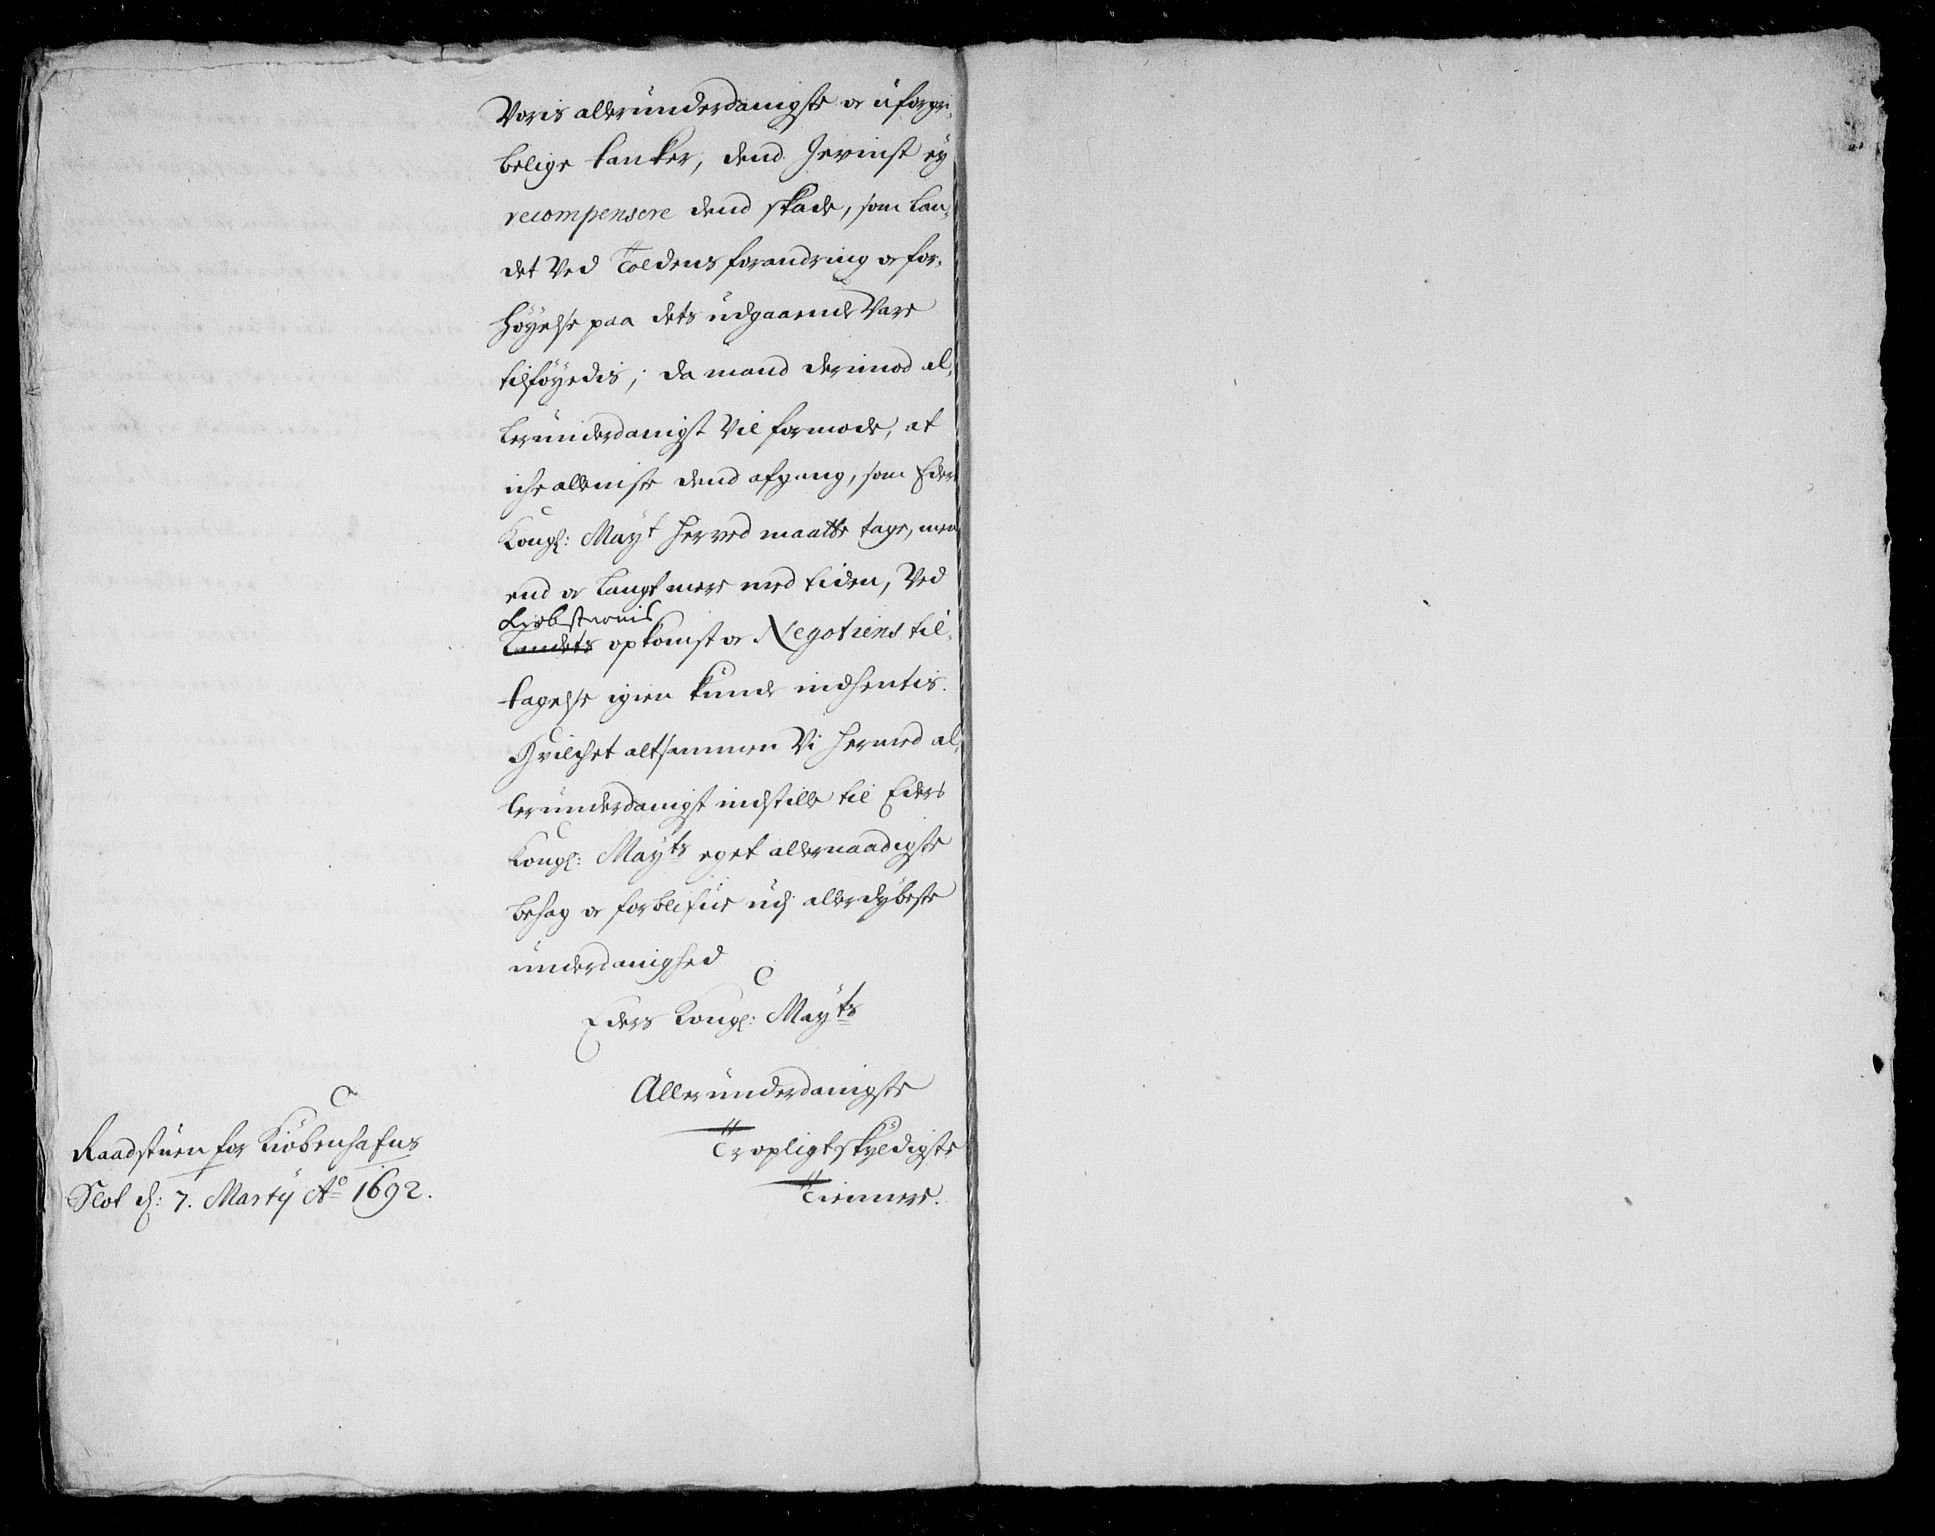 Voris allerunderdanigste oc uforgri-
belige tanker, dend gevinst ey
recompensere dend skade, som Lan-
det Ved Toldens forandring oc for-
høyelse paa dets udgaaende Vare
tilføyedis; da mand derimod al-
lerunderdanigst Vil formode, at
iche alleniste dend afgang, som Eders
Kongl: Mayt herved maatte tage, men
end oc langt mere med tiden, Ved
Kiøbstædernis
Landets opkomst oc Negotiens til-
tagelse igien kunde indhentis.
Hvilchet altsammen Vi hermed al-
lerunderdanigst indstille til Eders
Kongl: Mayts eget allernaadigste
behag oc forblifue udj allerdybeste
underdanighed
Eders Kongl: Mayts
Allerunderdanigste
Tropligtskyldigste
Tienere.
Raadstuen for Kiøbenhafns
Slot d: 7. Martij Ao 1692.